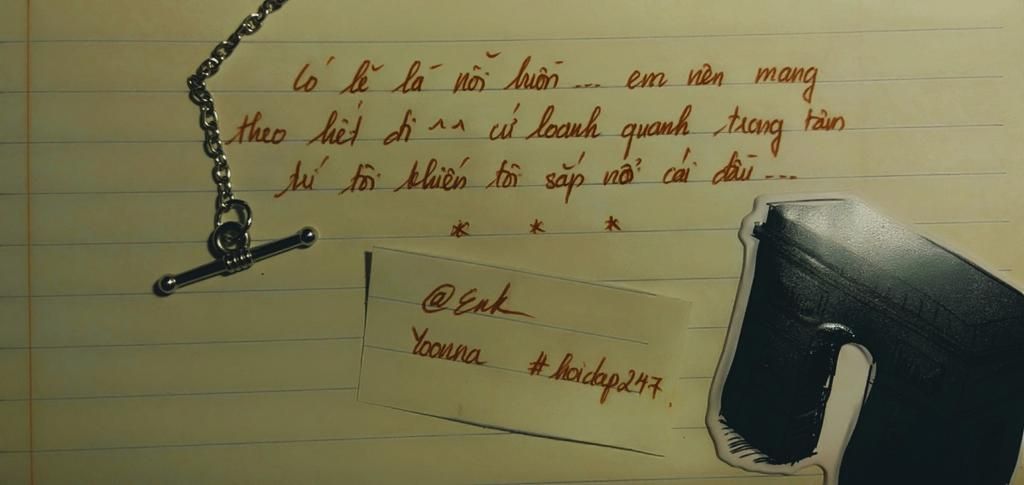 Có lẽ là nỗi buồn ... em nên mang
theo hết đi ^^ cứ loanh quanh trong tâm
trí tôi khiến tôi sắp nổ cái đầu ...
* * *
@Enk
Yoonna #hoidap247